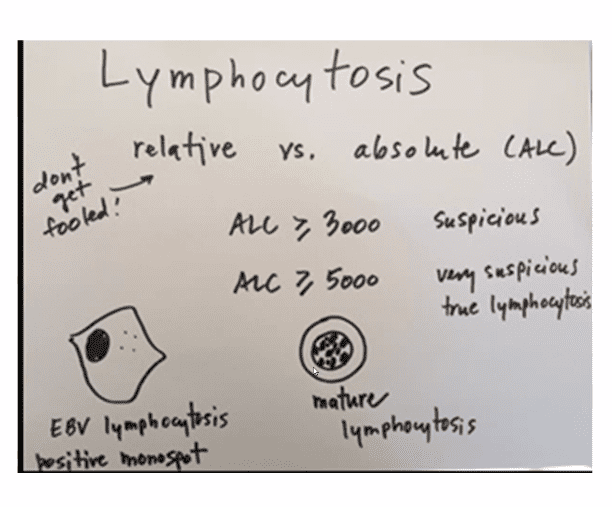 Lymphocytosis
relative vs. absolute (ALC)
don't
get
fooled!
ALC ⩾ 3000 suspicious
ALC ⩾ 5000 very suspicious
true lymphocytosis
EBV lymphocytosis
positive monospot
mature
lymphocytosis